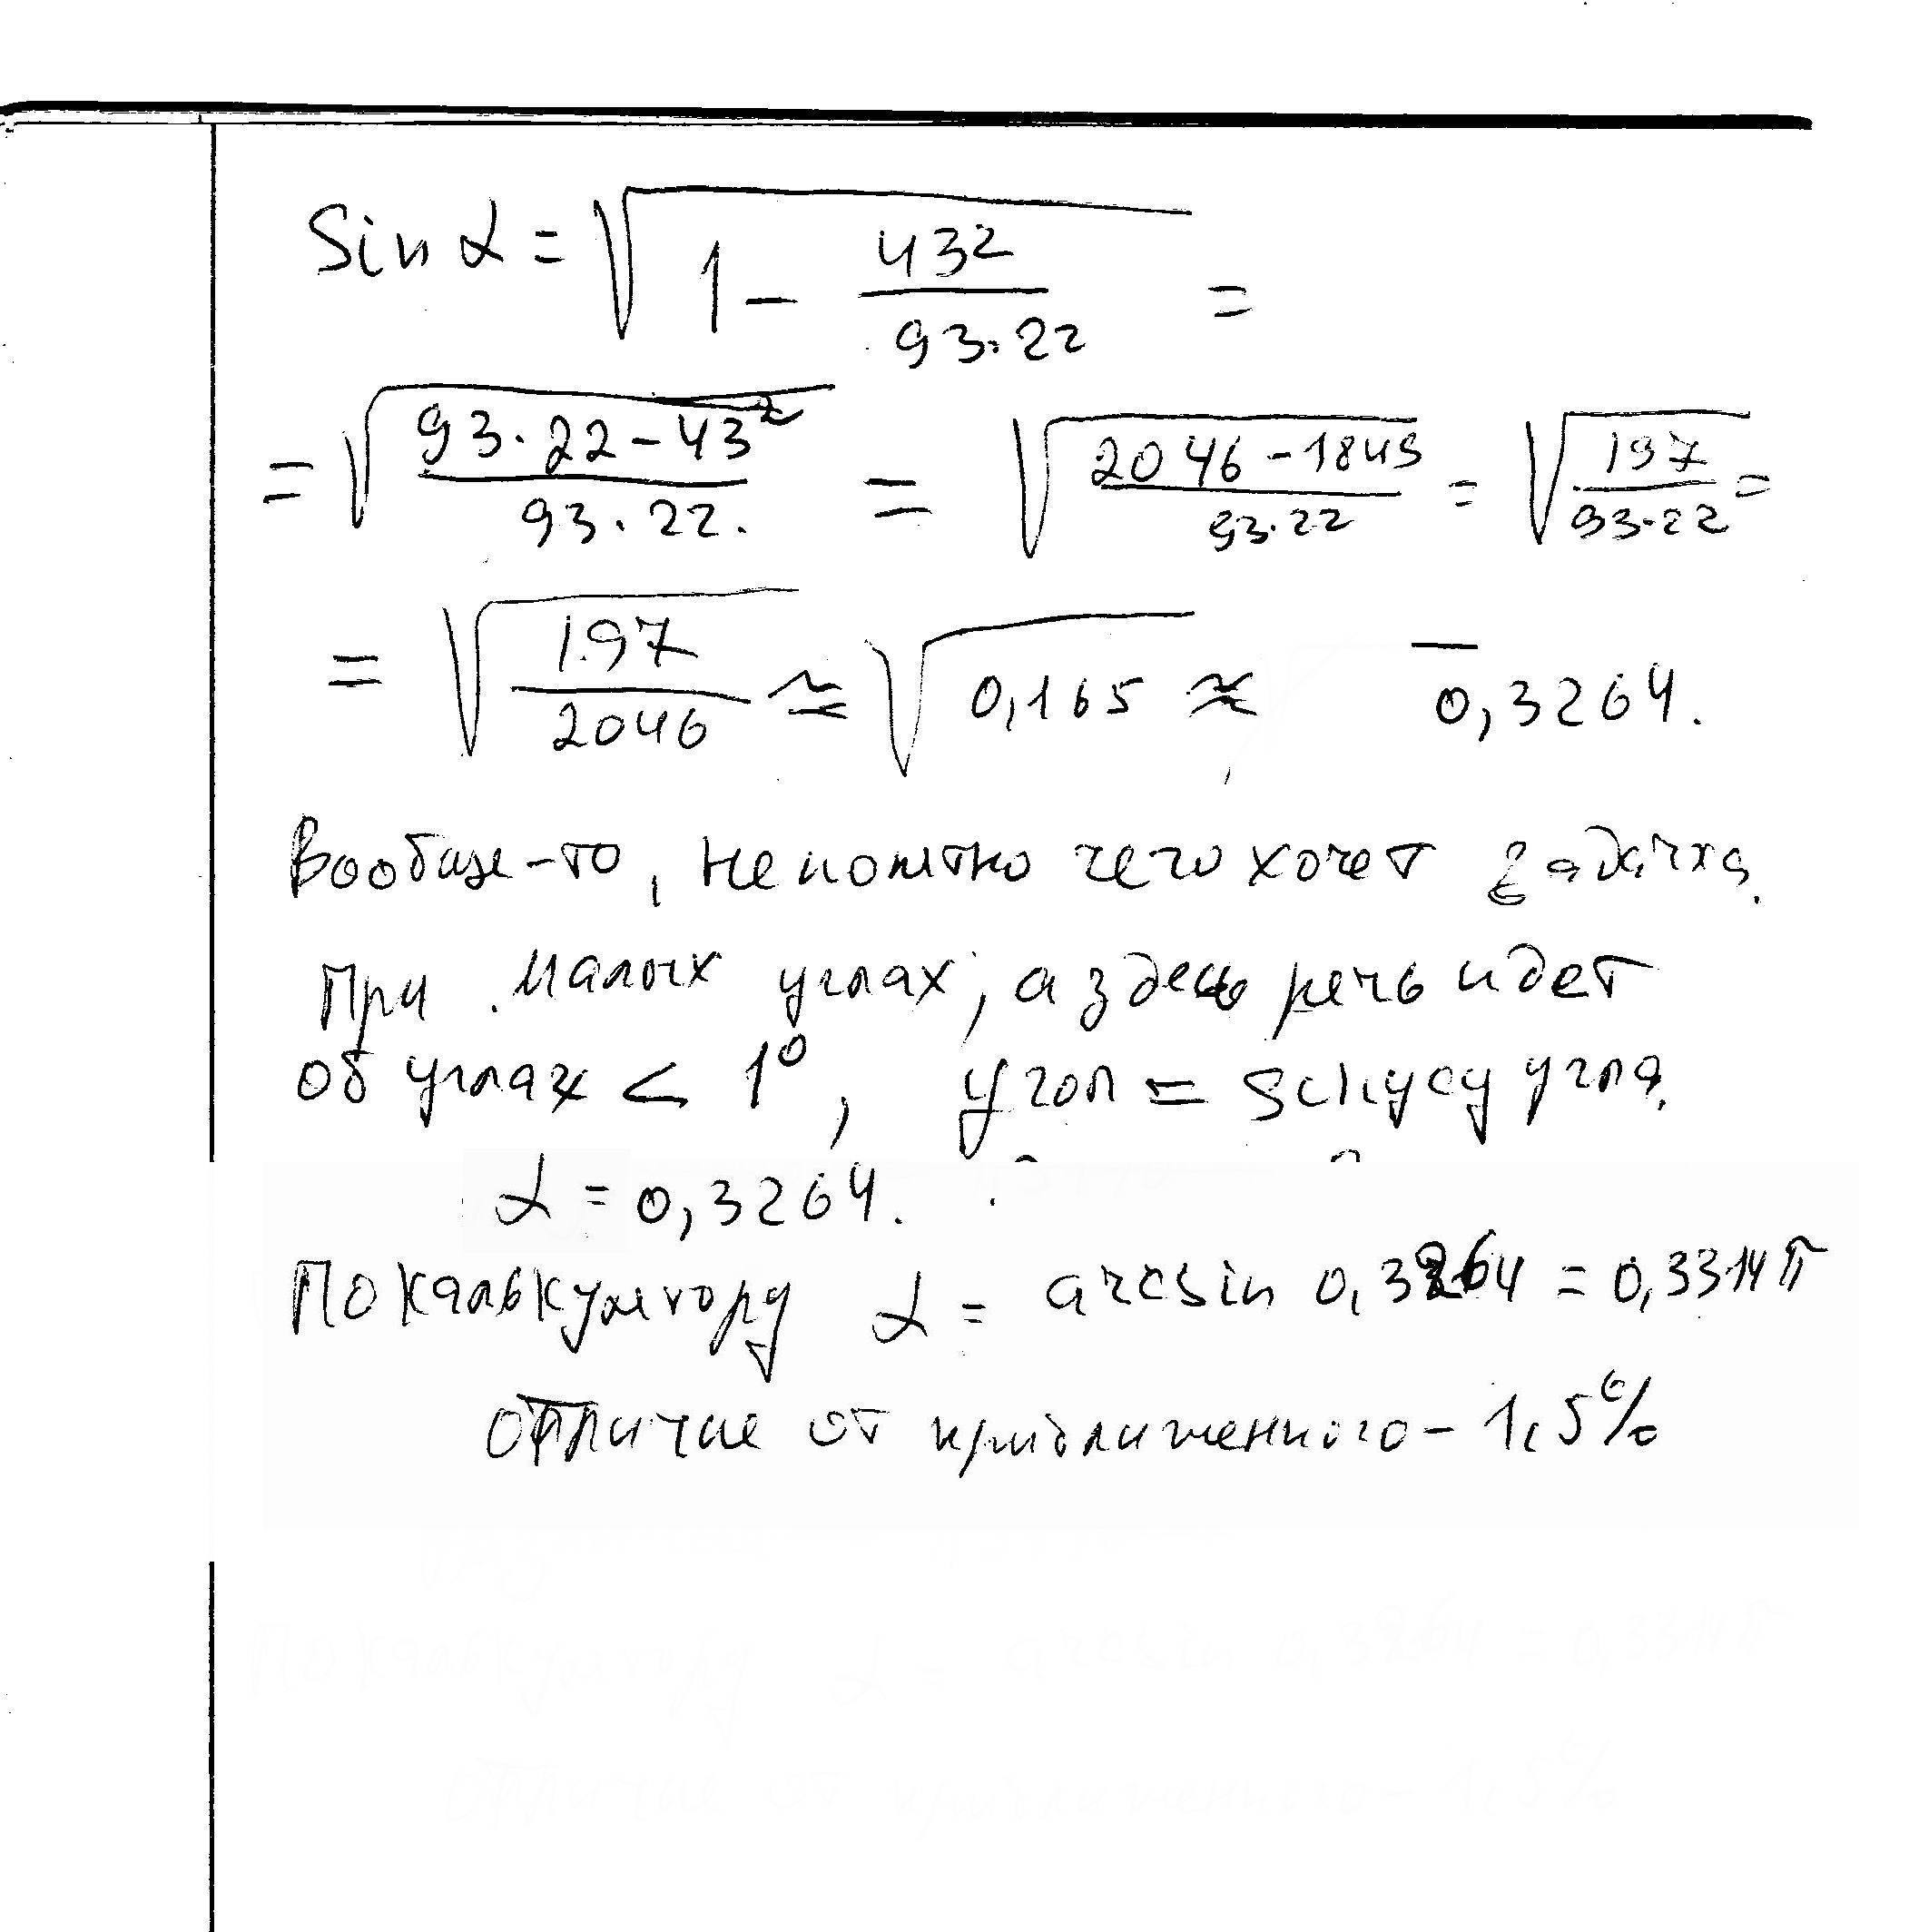 Sin α = √(1 - 43²/(93·22)) =
= √((93·22-43²)/(93·22.)) = √((2046-1849)/(93·22)) = √(197/(93·22)) =
= √(197/2046) ≈ √0,165 ≈ 0,3264.
Вообще-то, непонятно чего хочет задачка.
При малых углах, а здесь речь идет
об углах < 1⁰, угол = sинусу угла.
α = 0,3264.
По калькулятору α = arcsin 0,3264 = 0,3314π
отличие от приближенного - 1,5%